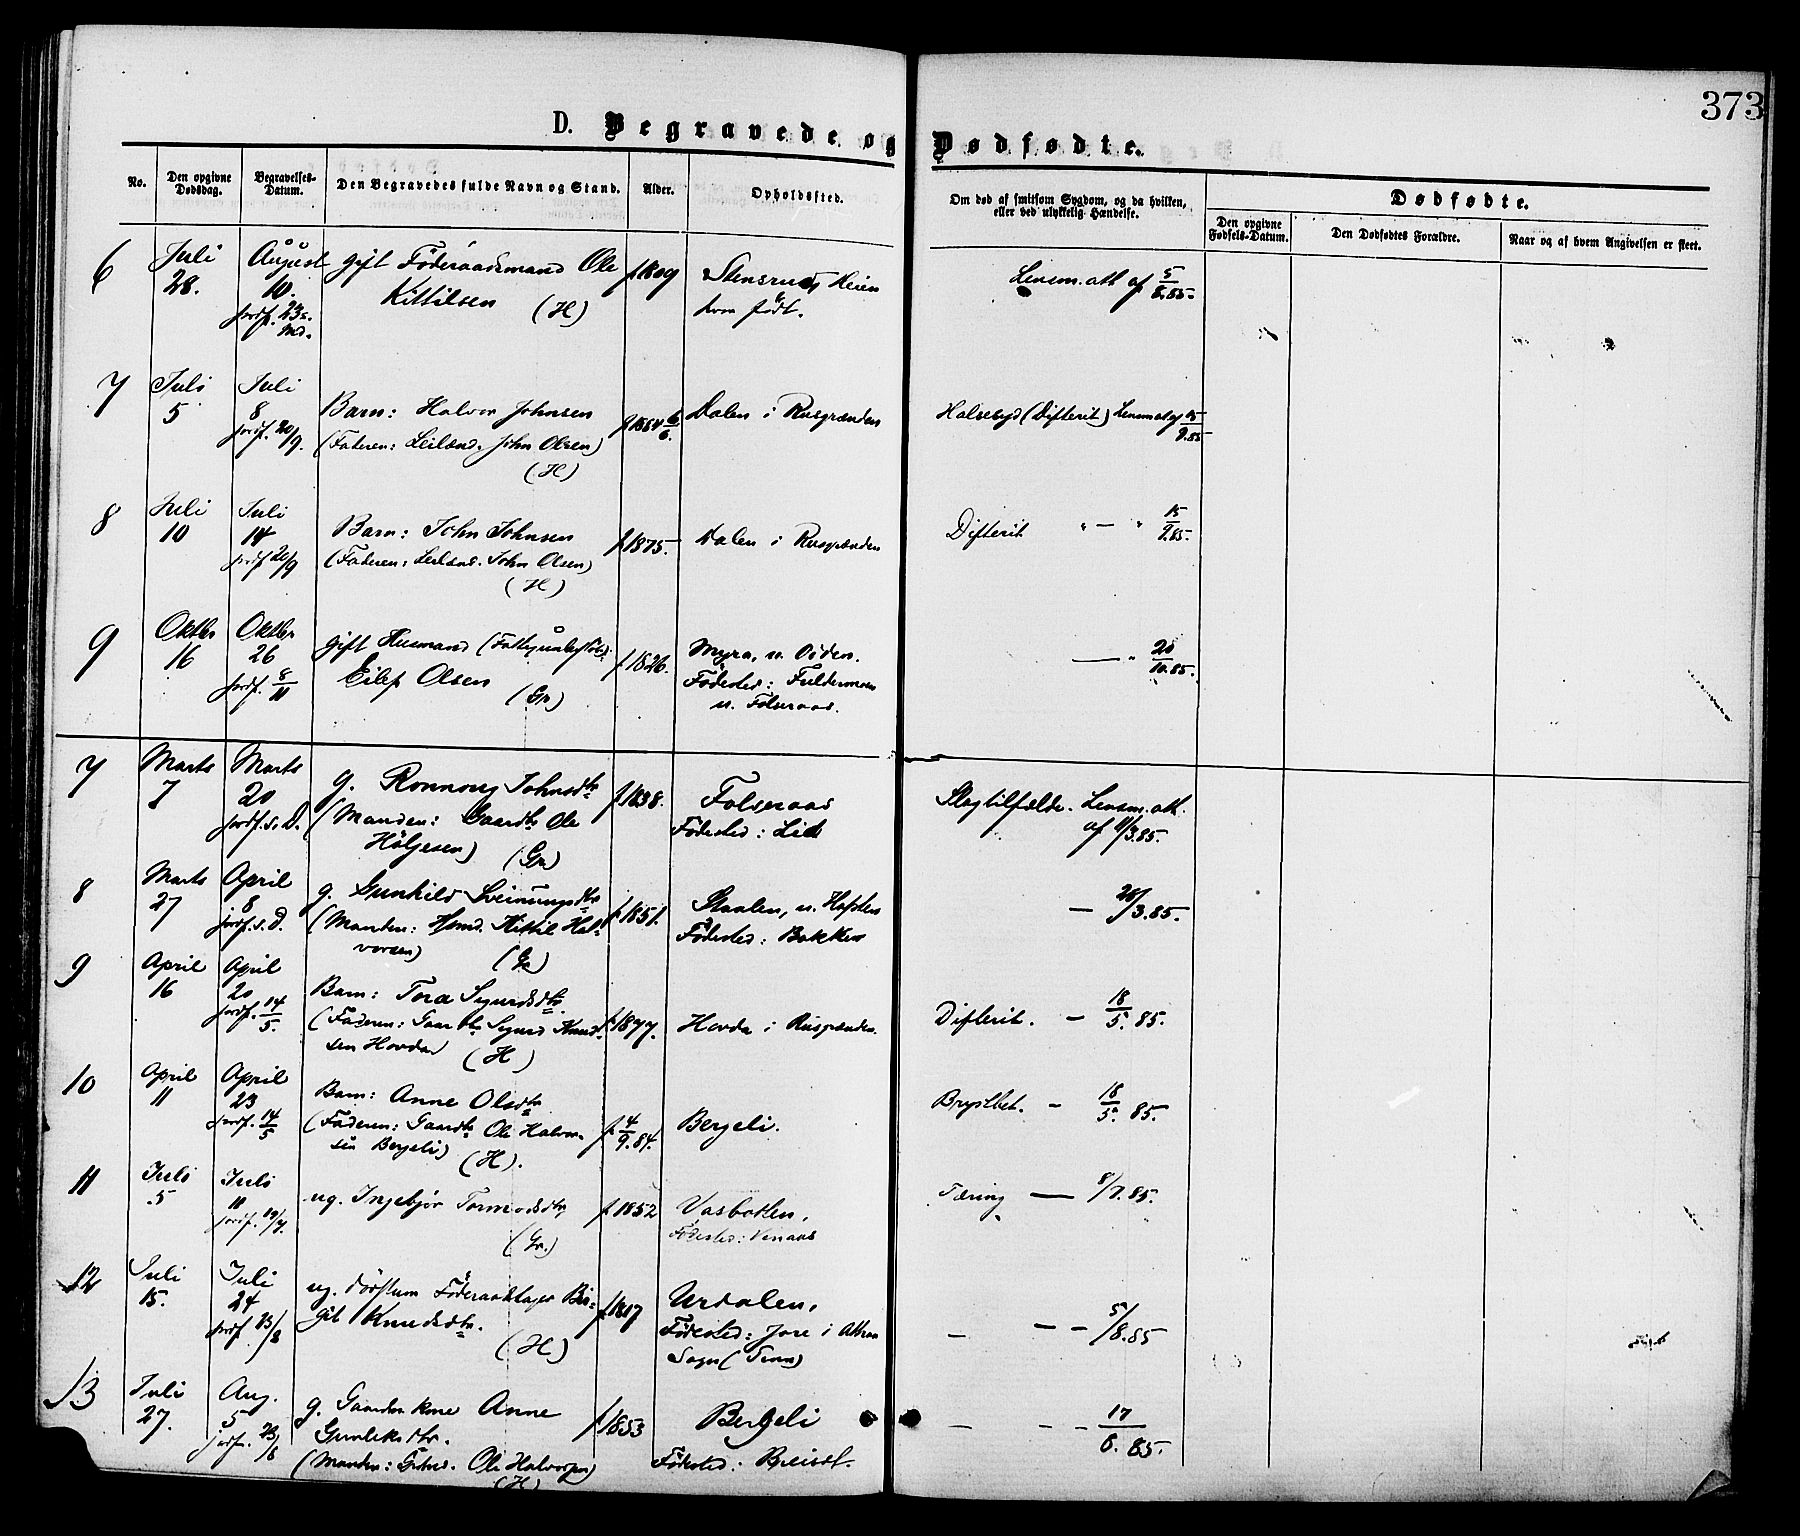 373
D. Begravede og Dødfødte.
No.
Den opgivne Dødsdag.
Begravelses-Datum.
Den Begravedes fulde Navn og Stand.
Alder.
Opholdssted.
Om død af smitsom Sygdom, og da hvilken, eller ved ulykkelig Hændelse.
Dødfødte.
Den opgivne Fødsels-Datum.
Den Dødfødtes Forældre.
Naar og af hvem Angivelsen er skeet.
6
Juli
28.
August
10.
jordf. 23.
gift Föderaadsmand Ole
Kittilsen (H)
f. 1809
Stensrud, Heien
hvor født.
Lensm. att. af 5/8.85.
7
Juli
5
Juli
8
jordf. 20/9.
Barn: Halvor Johnsen
(Faderen: Leilænd. John Olsen)
(H)
f. 1884 6/6.
Dalen i Rusgrænden
Halsesyd (Difterit) Lensm. att. af 15/9.85
8
Juli
10
Juli
14
jordf. 20/9
Barn: John Johnsen
(Faderen: Leilænd. John Olsen)
(H)
f. 1875.
Dalen i Rusgrænden
Difterit " — " 15/9.85.
9
Oktbr
16
Oktbr
26
jordf. 8/11
gift Husmand
Eilef Olsen (Gr)
f. 1826.
Myra, u. Oiden.
Fødested: Fuldermoen
u. Folseraas.
— " 20/10.85.
7
Marts
7
Marts
20
jordf. s. D.
g. Ronnoug Johnsdtr
(Manden: Gaardbr. Ole
Höljesen) (Gr)
f. 1838.
Folseraas
Fødested: Lid
Slagtilfælde. Lensm. att.
af 11/3.85.
8
Marts
27
April
8
jordf. s. D.
g. Gunhild Sveinungsdtr
(Manden: Hsmd. Kittil Hal-
vorsen) (Gr)
f. 1851.
Staalen, u. Hafsten
Fødested: Bakken
— 28/3.85.
9
April
16
April
20
jordf. 14/5.
Barn: Tora Sigurdsdtr.
(Faderen: Gaardbr. Sigurd Knud-
sen Hovda) (H)
f. 1877.
Hovda i Rusgrænden.
Difterit. — 18/5.85.
10
April
11
April
23
jordf. 14/5
Barn: Anne Olsdtr
(Faderen: Gaardbr. Ole Halvor-
sen Bergeli) (H).
f. 4/9.84.
Bergeli.
Brystbet. — 18/5.85.
11
Juli
5
Juli
11
jordf. 19/7.
ug. Ingebjør Tormodsdtr
(Gr.)
f. 1852
Vasbotten,
Fødested: Vinaas
Tæring — 8/7.85.
12
Juli
15.
Juli
24
jordf. 23/8
ug. döfstum Föderaadstager Bir-
git Knudsdtr.
(H)
f. 1817
Urdalen,
Fødested: Jore i Attraa
Sogn (Tinn)
— — — 5/8.85
13
Juli
27.
Aug.
5
jordf. 23/8
g. Gaardbr. kone Anne
Gunleksdtr.
(Manden: Ole Halvorsen)
(H)
f. 1853
Bergeli
Fødested: Breiset.
— — — 17/8.85.